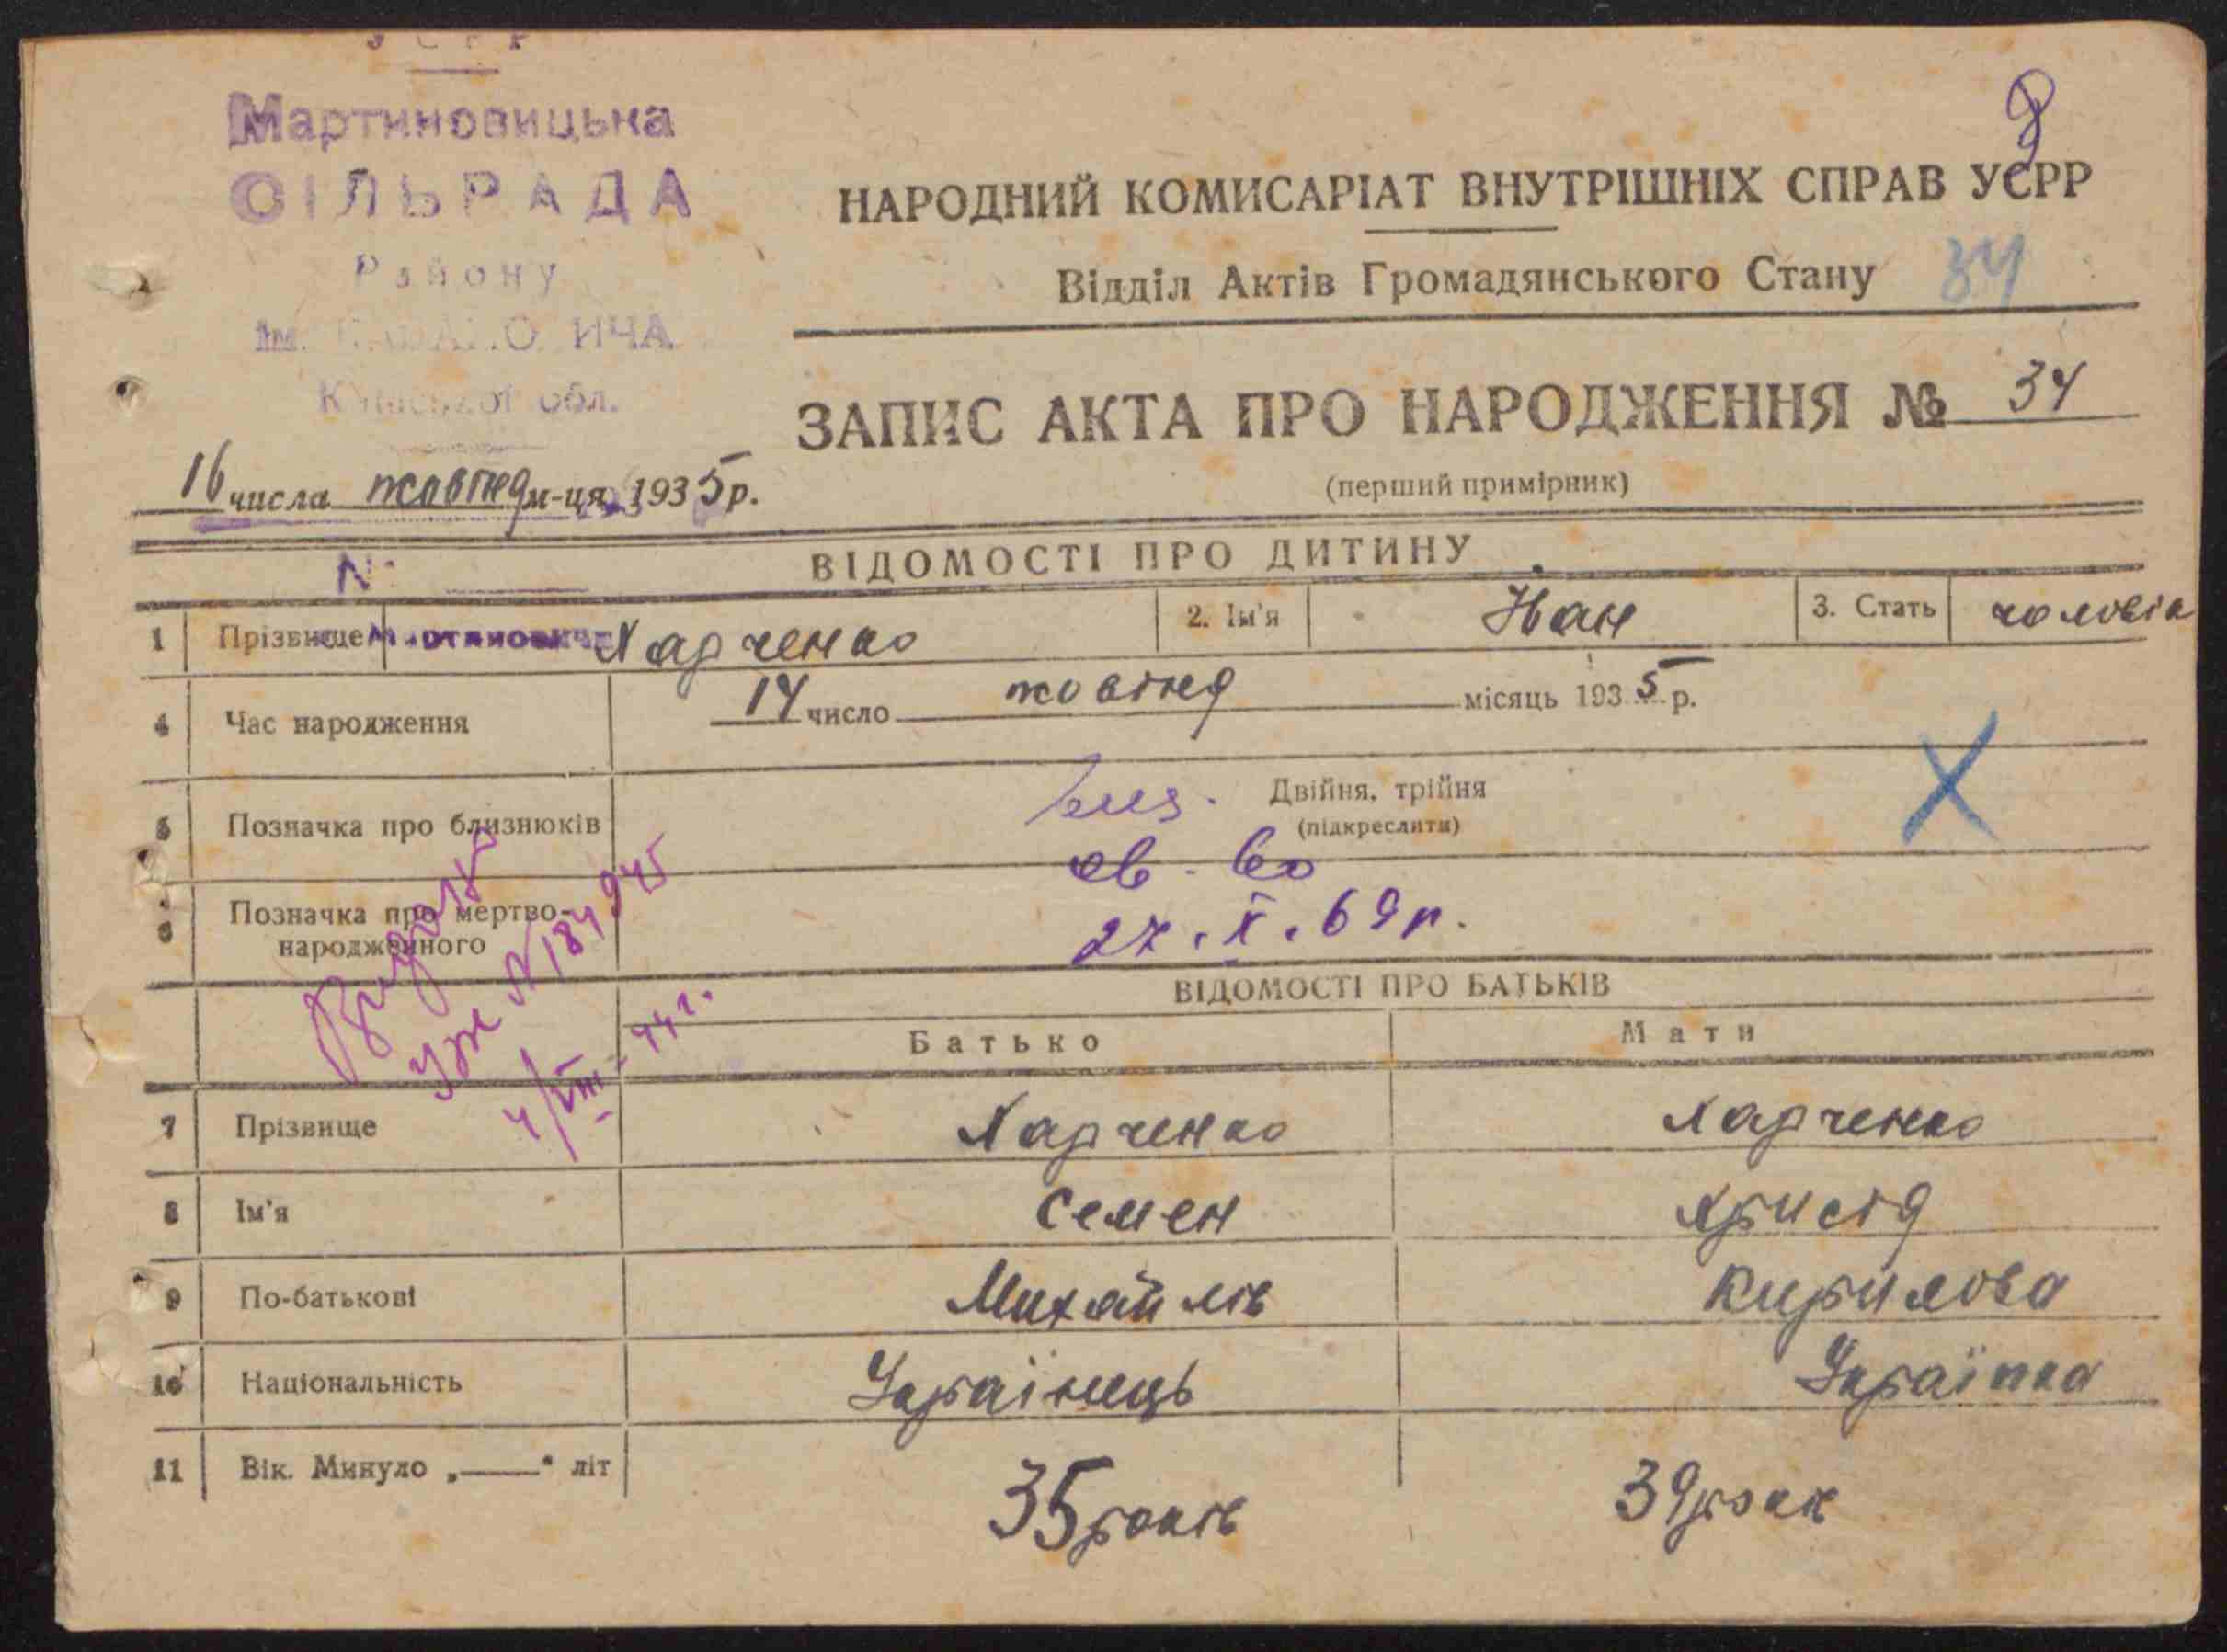 УСРР
Мартиновицька
СІЛЬРАДА
Району
ім. КАГАНОВИЧА
Київської обл.
16 числа жовтня м-ця 1935 р.
№
НАРОДНИЙ КОМИСАРІАТ ВНУТРІШНІХ СПРАВ УСРР
Відділ Актів Громадянського Стану 34
ЗАПИС АКТА ПРО НАРОДЖЕННЯ № 34
(перший примірник)
ВІДОМОСТІ ПРО ДИТИНУ
1 Прізвище Харченко 2. Ім'я Іван 3. Стать чоловік
4 Час народження 14 число жовтня місяць 1935 р.
5 Позначка про близнюків Двійня, трійня
(підкреслити)
св-во
27.X.69р.
6 Позначка про мертво-
народженого
ВІДОМОСТІ ПРО БАТЬКІВ
Батько Мати
7 Прізвище Харченко Харченко
8 Ім'я Семен Христя
9 По-батькові Михайлів Кирилова
10 Національність Українець Українка
11 Вік. Минуло „——" літ 35 років 39 років